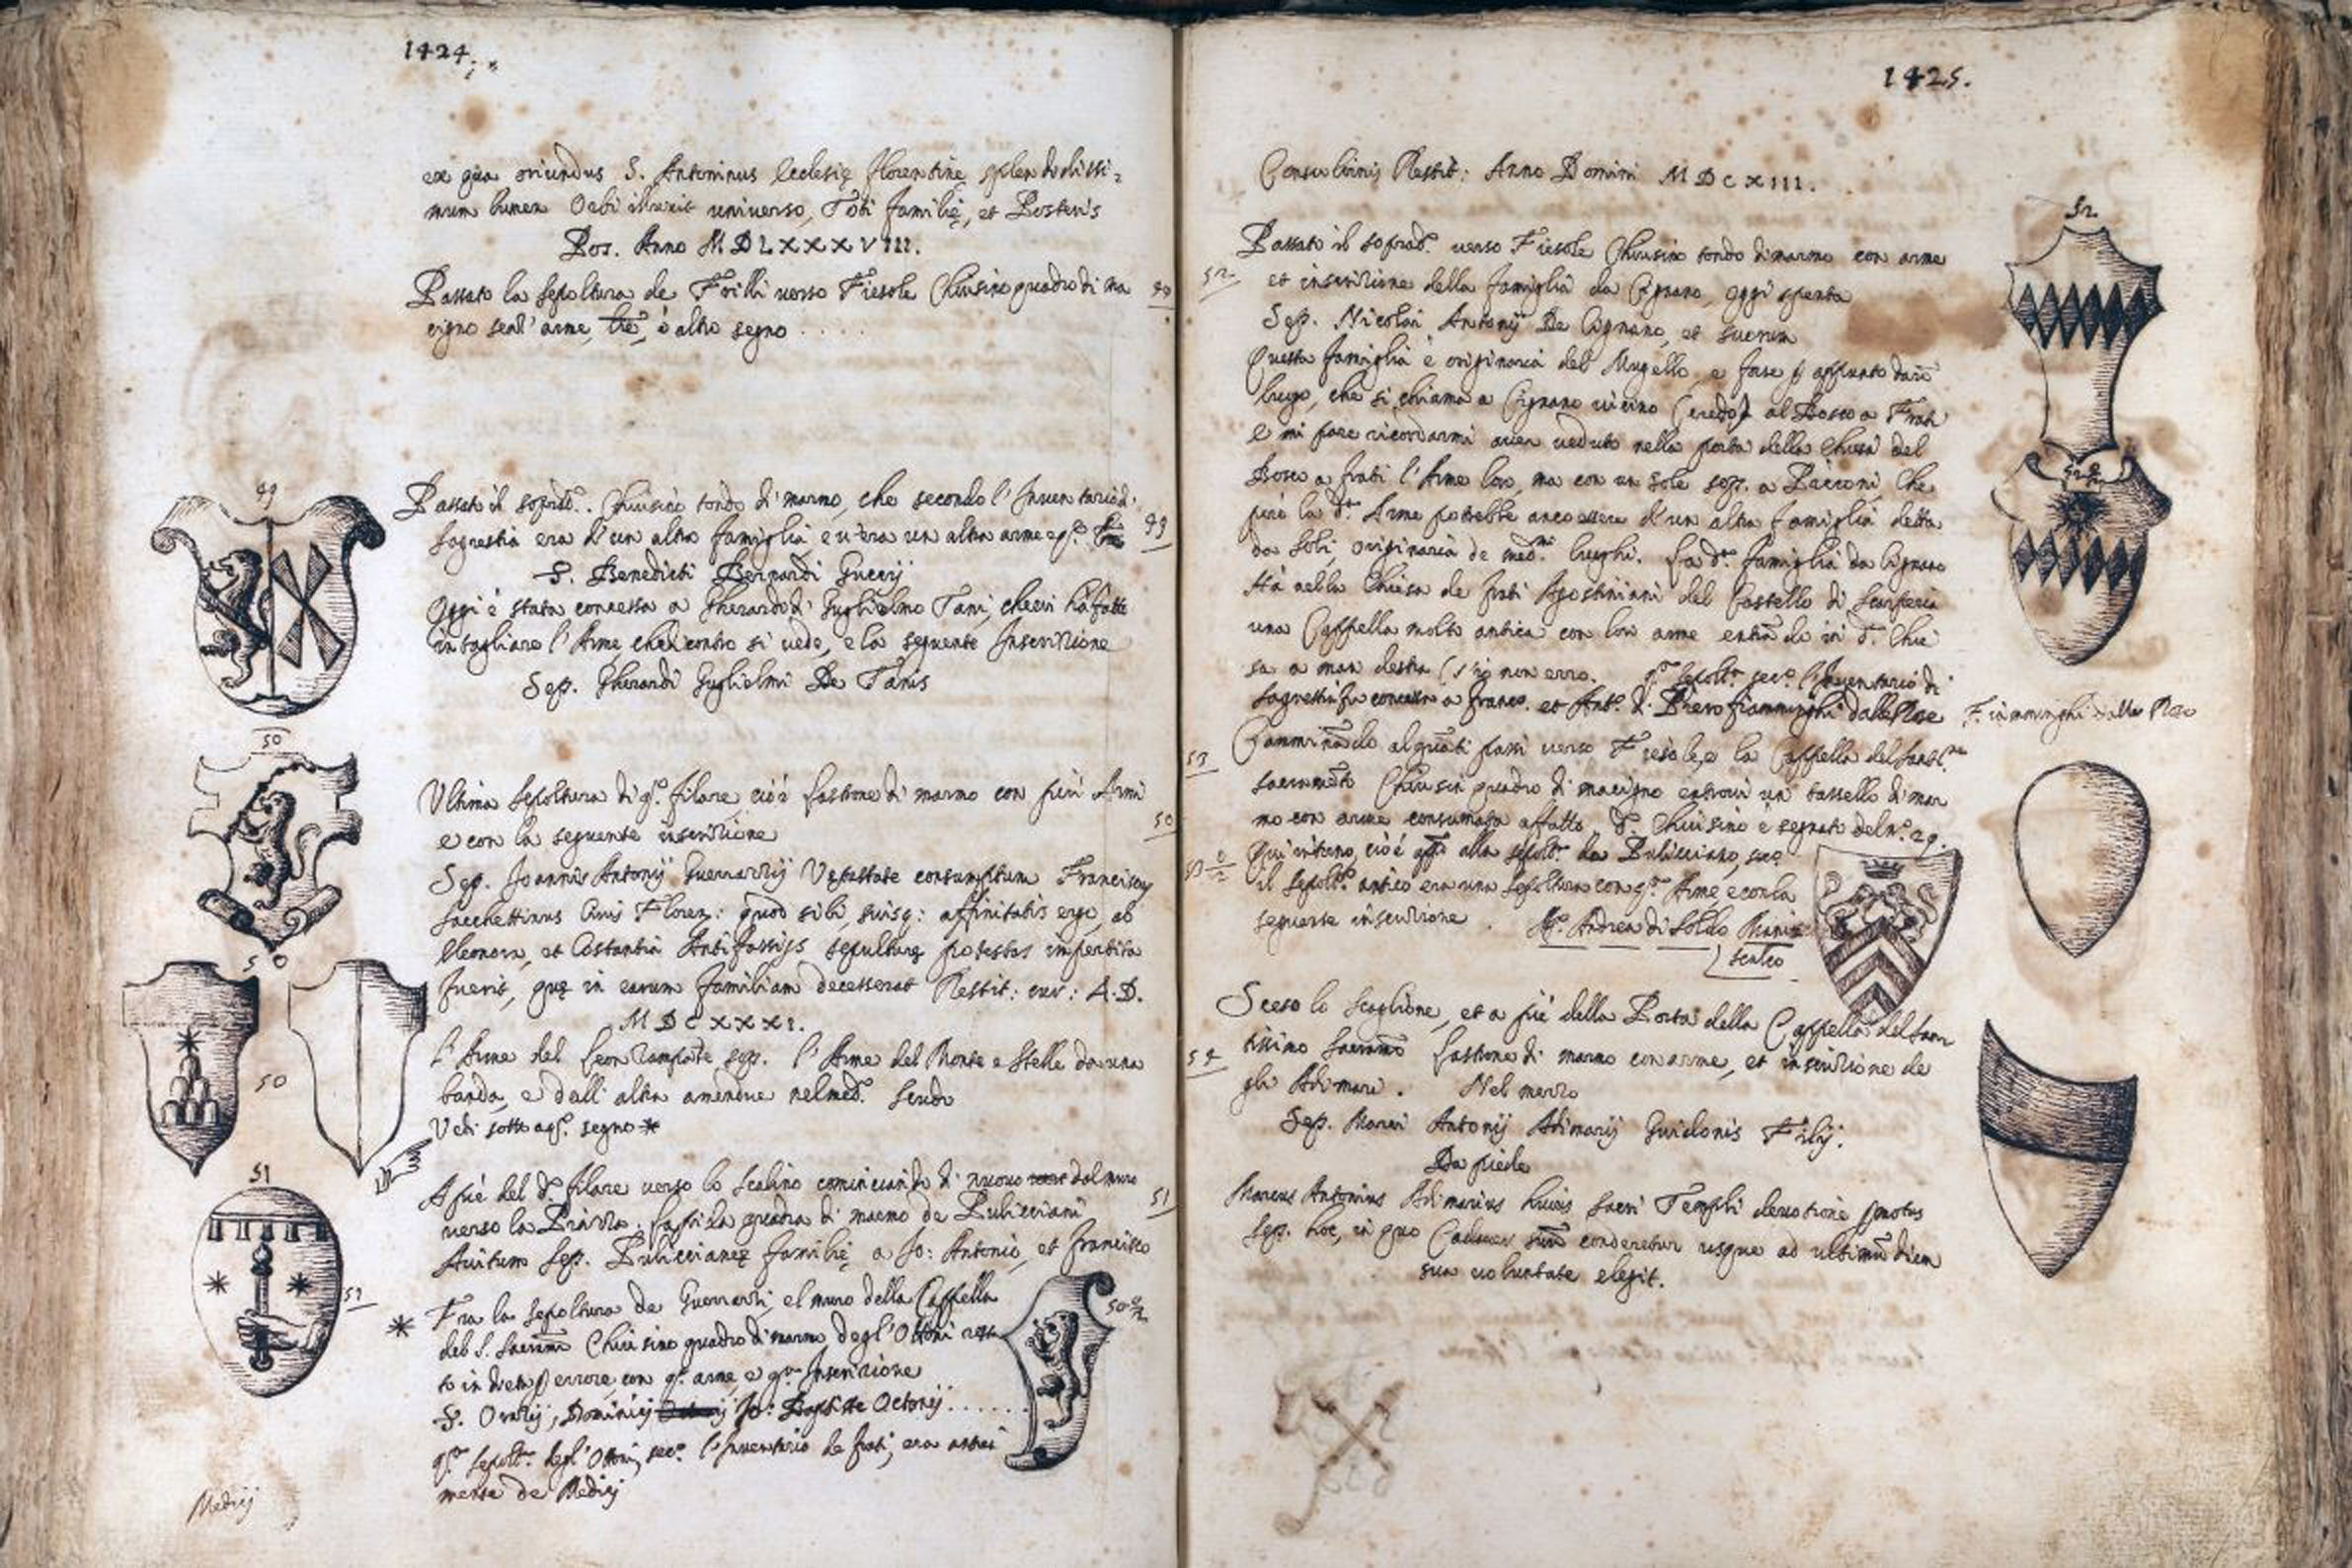 1424
ex qua oriundus S. Antoninus Ecclesię Florentinę splendidissi=
mum lumen Orbi illuxit universo, Toti Familię, et Posteris
Pos. Anno MDLXXXVIII.
Passato la sepoltura de Frilli verso Fiesole Chiusino quadro di ma
cigno senz' arme, lre, ò altro segno . . . .
49
Passato il sopradº. Chiusino tondo di marmo, che secondo l'Inventario di
49
Sagrestia era d'un altra famiglia e v'era un altra arme e qª.
S. Benedicti Bernardi Guccij
Oggi è stata concessa a Gherardo di Guglielmo Tani, che vi hà fatto
intagliare l'Arme che di contro si vede, e la seguente Inscrizione
Sep. Gherardi Guglielmi De Tanis
50
Ultima sepoltura di qº. filare, cioè lastrone di marmo con più Armi
50
e con la seguente inscrizione
Sep. Joannis Antonij Guerrazzij Vetustate consumptum Franciscus
Sacchettinus Civis Floren: quod sibi, suisq: affinitatis ergo, ab
Eleonora, et Costantia Antifassijs sepulturę potestas impertita
fuerit, quę in earum familiam decesserat Restit: cur: A.D.
MDCXXXI.
L'Arme del Leon rampante sop. l'Arme del Monte e Stelle da una
50
banda, e dall' altra amendue nel medº. scudo
Vedi sotto a qº. segno *
51
A piè del dº. filare verso lo scalino cominciando di nuovo dal muro
51
verso la Piazza. Lapida quadra di marmo de Pulicciani
Avitum Sep. Puliccianę familię a Jo: Antonio, et Francisco
51
* Fra la sepoltura de Guerrazzi, e l muro della Cappella
50
del S. Sacramto Chiusino quadro di marmo degl'Ottoni
to indietro p errore, con qª. arme, e qª. Inscrizione
S. Oratij, Dominicij Jo: Baptiste Octonij . . . . . .
qª. sepoltª. degl'Ottoni, secº. l'Inventario de frati, era
mente de Medici
Medicij
1425.
Consobrinis Restit: Anno Domini MDCXIII.
52
Passato il sopradº. verso Fiesole Chiusino tondo di marmo con arme
52
et inscrizione della famiglia da Cignano, oggi spenta
Sep. Nicolai Antonij De Cignano, et suorum
Questa famiglia è originaria del Mugello, e forse p appunto da un
luogo, che si chiama a Cignano vicino (credo) al Bosco a Frati
E mi pare ricordarmi aver veduto nella porta della Chiesa del
Bosco a frati l'Arme loro, ma con un sole sop. a Che
però la dª. Arme potrebbe anco essere d'un altra famiglia detta
da Soli, originaria de medmi. luoghi. La dª. famiglia da Cignano
hà nella Chiesa de frati Agostiniani del Castello di Scarperia
una Cappella molto antica con loro arme entrando in dª. Chie
sa a man destra (s'io non erro. qª sepoltª. secº. l'Inventario di
Sagrestia fu concessa a Francº. et Antº. di Piero fiamminghi dalle Rose
Fiamminghi dalle Rose
53
Camminando alquati passi verso Fiesole, e la Cappella del Santmo
Sacramento Chiusin quadro di macigno entrovi un tassello di mar
mo con arme consumata affatto. dº. Chiusino è segnato del nº. 29.
Qui intorno, cioè alla sepoltª. da Pulicciano, secº
il sepoltº. antico era una sepoltura con qª. Arme, e con la
seguente inscrizione . Mº. Andrea di Soldo
54
Sceso lo scaglione, et a piè della Porta della Cappella del San
tissimo Sacramto Lastrone di marmo con arme, et inscrizione de
gli Adimari . Nel mezzo
Sep. Marci Antonij Adimarij Guidonis Filij.
Da piede
Marcus Antonius Adimarius huius sacri Templi devotione motus
Sep. hoc, in quo Cadaver suū conderetur usque ad ultimū diem
sua voluntate elegit.